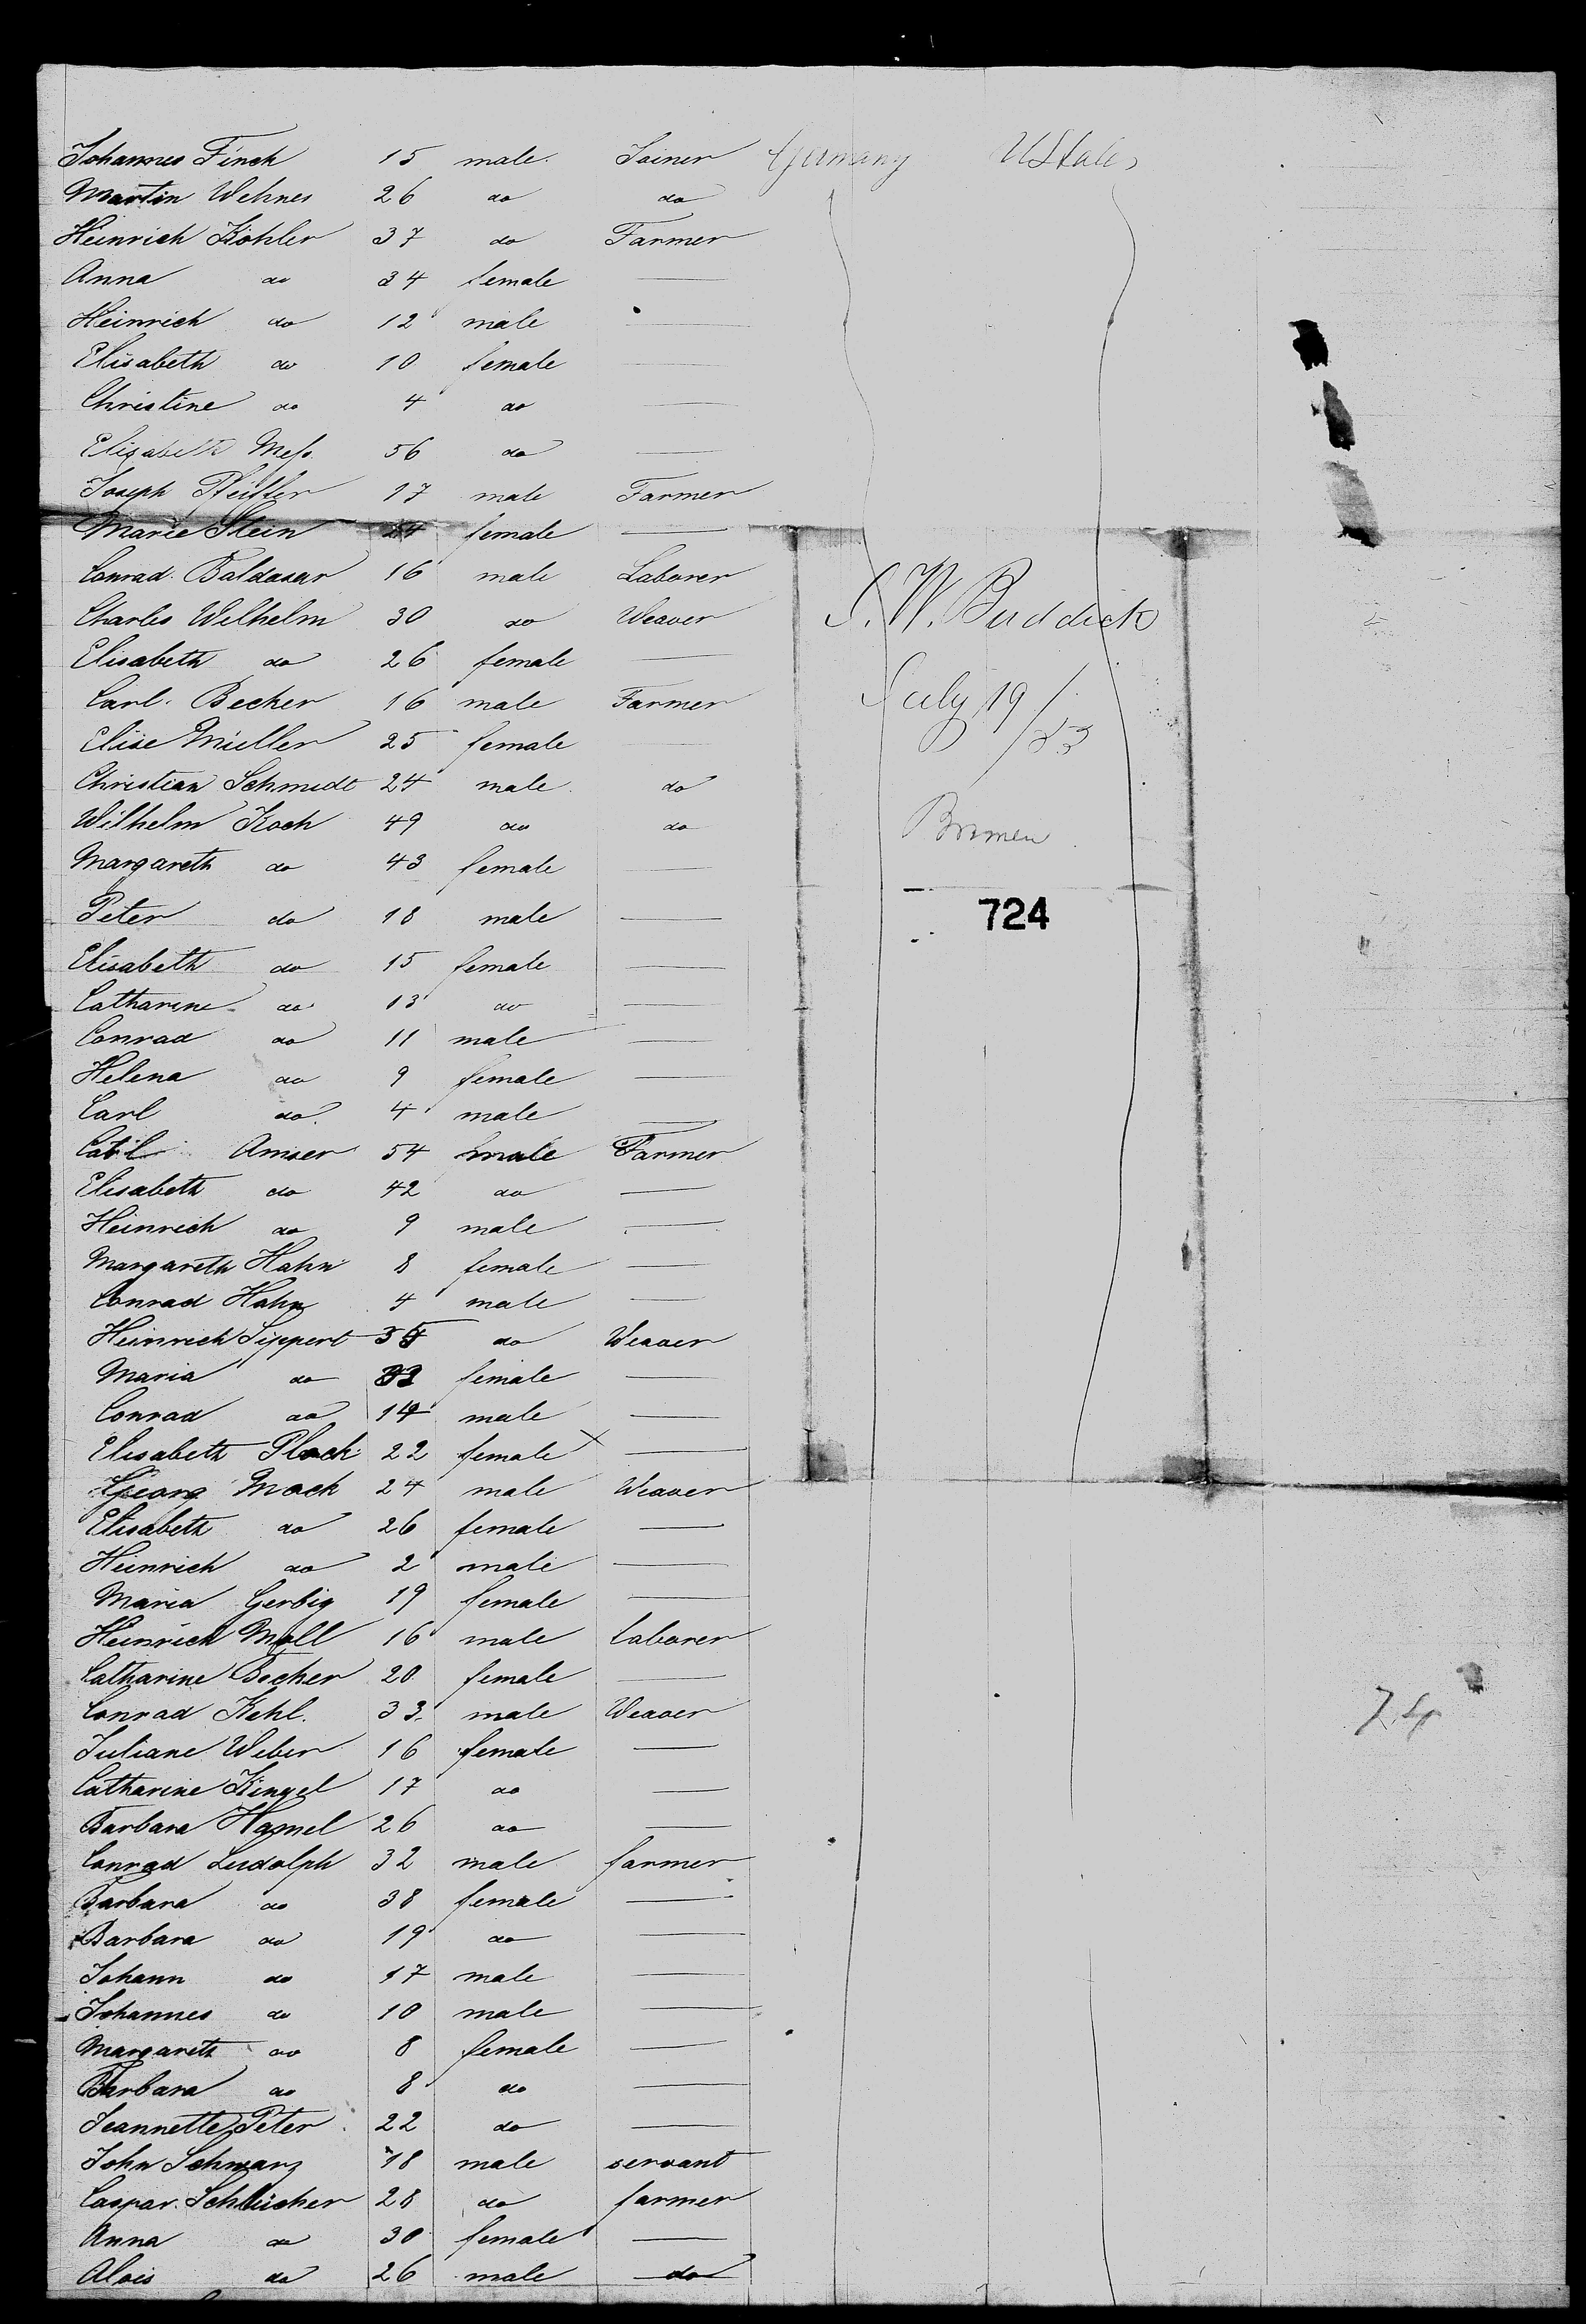 Johannes Finck 15 male Joiner Germany UStates
Martin Wehnes 26 do do
Heinrich Köhler 37 do Farmer
Anna do 34 female —
Heinrich do 12 male —
Elisabeth do 10 female —
Christine do 4 do —
Elisabeth 56 do —
Joseph 17 male Farmer
Marie Stein female —
Conrad Baldasar 16 male Laborer
Charles Wilhelm 30 do Weaver
Elisabeth do 26 female —
Carl Becker 16 male Farmer
Elise Müller 25 female —
Christian Schmidt 24 male do
Wilhelm Koch 49 do do
Margareth do 43 female —
Peter do 18 male —
Elisabeth do 15 female —
Catharine do 13 do —
Conrad do 11 male —
Helena do 9 female —
Carl do 4 male —
Amser 54 male Farmer
Elisabeth do 42 do —
Heinrich do 9 male —
Margareth Hahn 8 female —
Conrad Hahn 4 male —
Heinrich Sippert do Weaver
Maria do female —
Conrad do 14 male —
Elisabeth Plock 22 female x —
Georg Mock 24 male Weaver
Elisabeth do 26 female —
Heinrich do 2 male —
Maria Gerbig 19 female —
Heinrich Moll 16 male Laborer
Catharine Becher 20 female —
Conrad Kehl. 33 male Weaver
Juliane Weber 16 female —
Catharine Kingel 17 do —
Barbara Hamel 26 do —
Conrad Ludolph 32 male farmer
Barbara do 38 female —
Barbara do 19 do —
Johann do 17 male —
Johannes do 10 male —
Margareth do 8 female —
Barbara do 8 do —
Jeannette Peter 22 do —
John Schwarz 18 male servant
Caspar Schlücher 28 do farmer
Anna do 30 female —
Alois do 26 male do
S. W. Buddick
July 19/53
Bremen
724
74